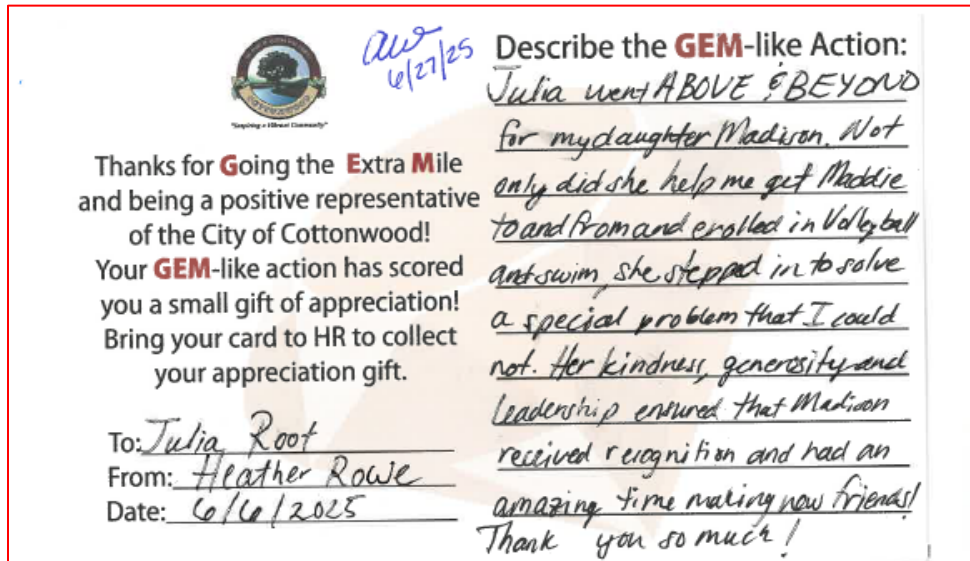 COTTONWOOD
"Inspiring a Vibrant Community"
6/27/25
Thanks for Going the Extra Mile
and being a positive representative
of the City of Cottonwood!
Your GEM-like action has scored
you a small gift of appreciation!
Bring your card to HR to collect
your appreciation gift.
To: Julia Root
From: Heather Rowe
Date: 6/6/2025
Describe the GEM-like Action:
Julia went ABOVE & BEYOND
for my daughter Madison. Not
only did she help me get Maddie
to and from and erolled in Volleyball
ant swim, she stepped in to solve
a special problem that I could
not. Her kindness, generosity and
leadership ensured that Madison
received recognition and had an
amazing time making new friends!
Thank you so much!